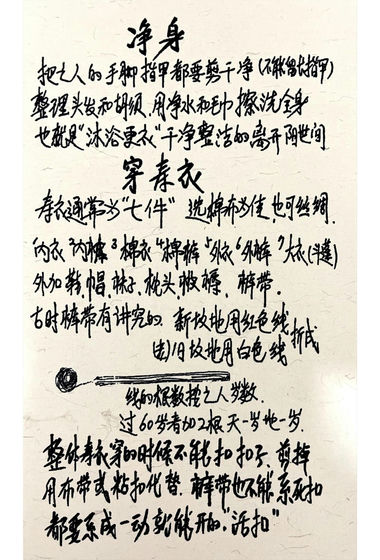 净身
把亡人的手脚指甲都要剪干净(不能留长指甲)
整理头发和胡须.用净水和毛巾擦洗全身
也就是"沐浴更衣"干净整洁的离开阳世间
穿寿衣
寿衣通常为"七件" 选棉布为佳,也可丝绸.
¹内衣²内裤³棉衣⁴棉裤⁵外衣⁶外裤⁷大衣(斗篷)
外加鞋,帽,袜子,枕头,被褥.裤带.
古时裤带有讲究的.新坟地用红色线 折成
老旧坟地用白色线
线的根数按亡人岁数.
过60岁者加2根 天一岁地一岁.
整体寿衣穿的时候不能扣扣子.剪掉
用布带或粘扣代替.裤带也不能系死扣
都要系成一动就能开的."活扣"